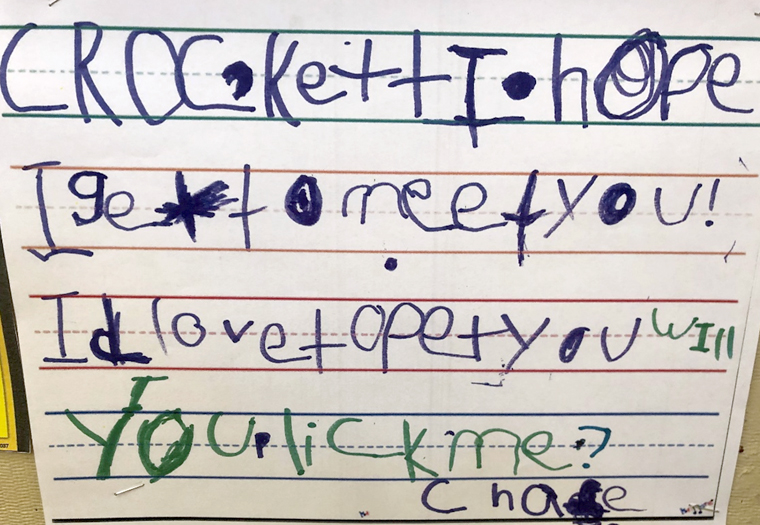 CROCKett I hope
I get to meet you!
Id love to pet you will
you lick me?
Chase